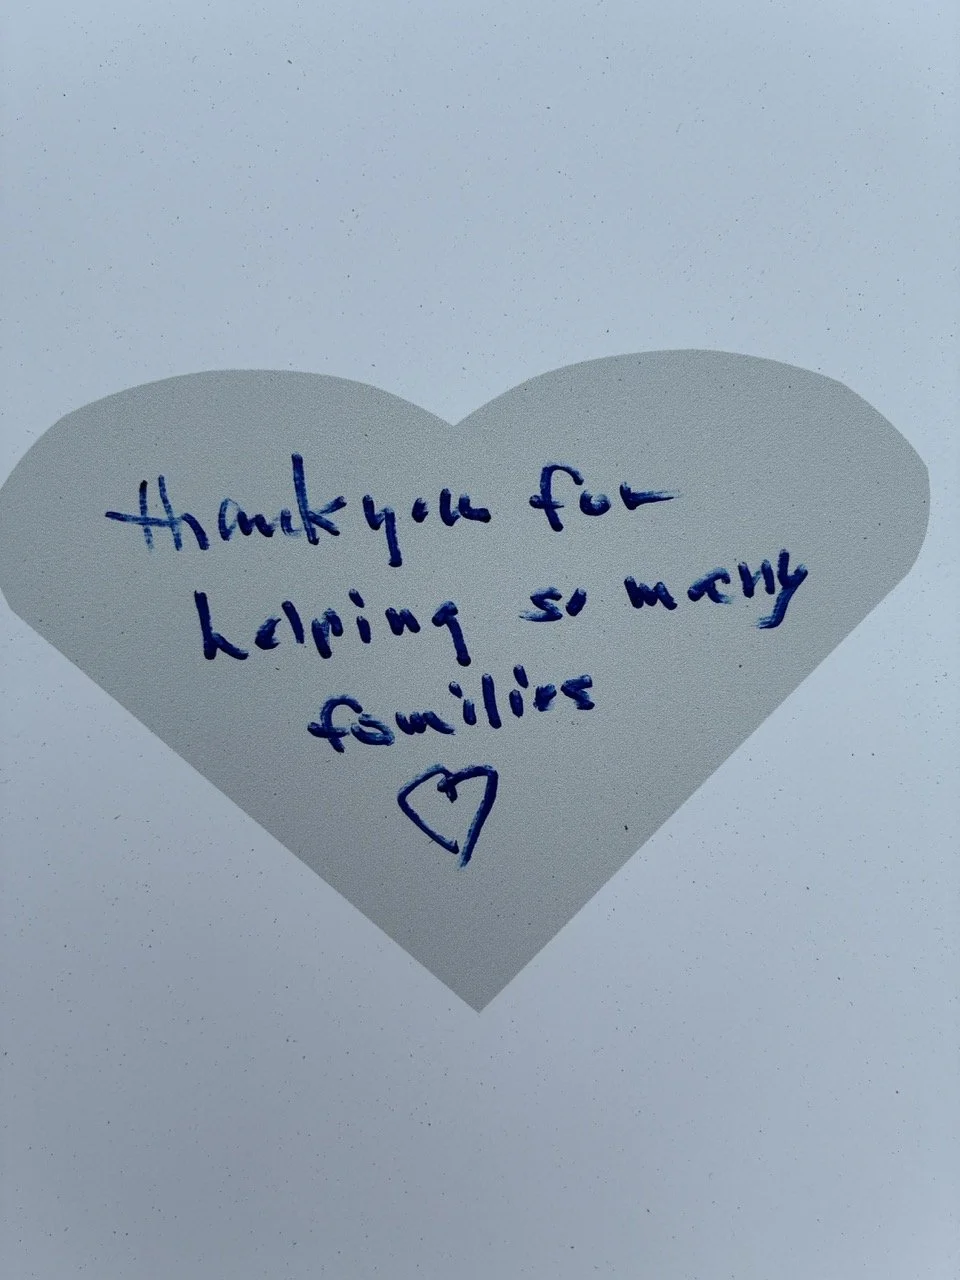 thank you for
helping so many
families
♡